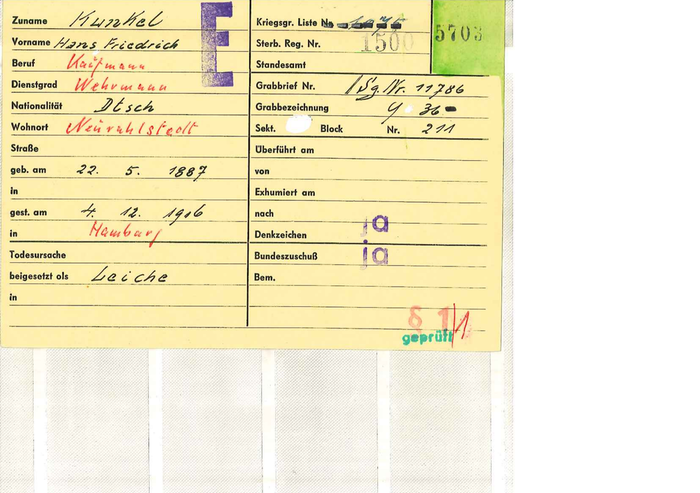 Zuname Kunkel
Vorname Hans Friedrich
Beruf Kaufmann
Dienstgrad Wehrmann
Nationalität Dtsch
Wohnort Neurahlstedt
Straße
geb. am 22. 5. 1887
in
gest. am 4. 12. 1916
in Hamburg
Todesursache
beigesetzt als Leiche
in
E
Kriegsgr. Liste Nr.
Sterb. Reg. Nr. 1500
5703
Standesamt
Grabbrief Nr. /Sg.Nr. 11786
Grabbezeichnung Y 36
Sekt. Block Nr. 211
Überführt am
von
Exhumiert am
nach
Denkzeichen ja
Bundeszuschuß ja
Bem.
§ 1/1
geprüft